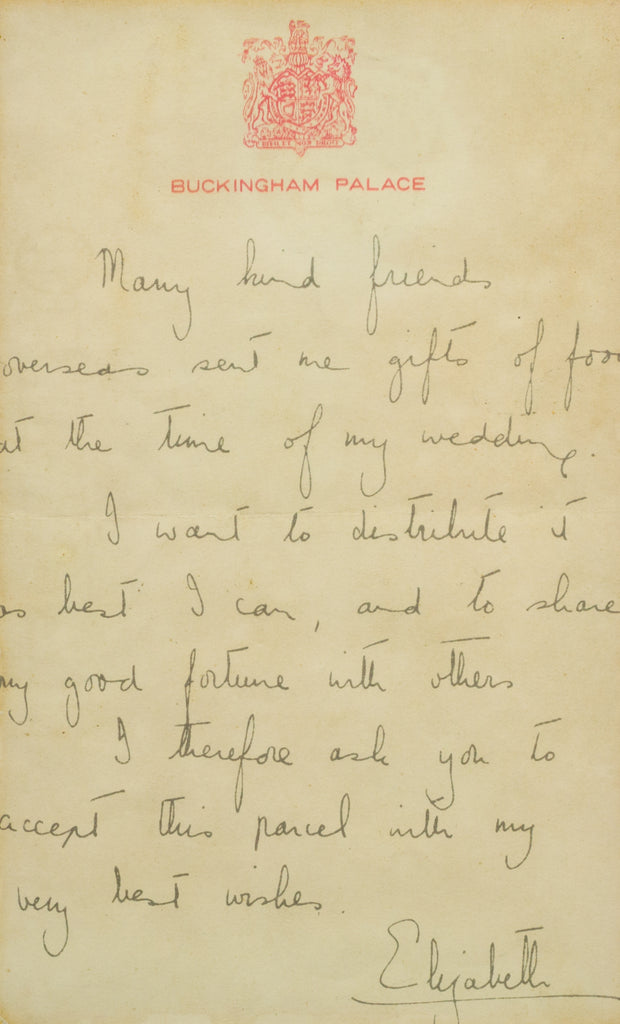 DIEU ET MON DROIT
BUCKINGHAM PALACE
Many kind friends
overseas sent me gifts of foo
at the time of my wedding.
I want to distribute it
as best I can, and to share
my good fortune with others
I therefore ask you to
accept this parcel with my
very best wishes.
Elizabeth